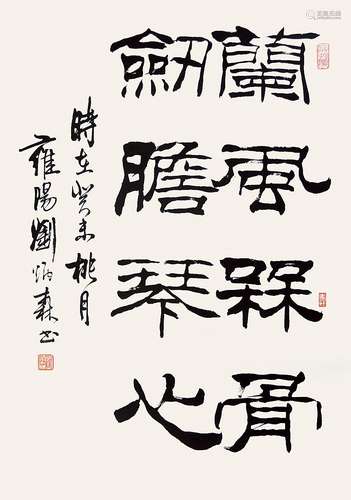 蘭風槑骨
劒膽琴心
時在癸未桃月
雍陽劉炳森書